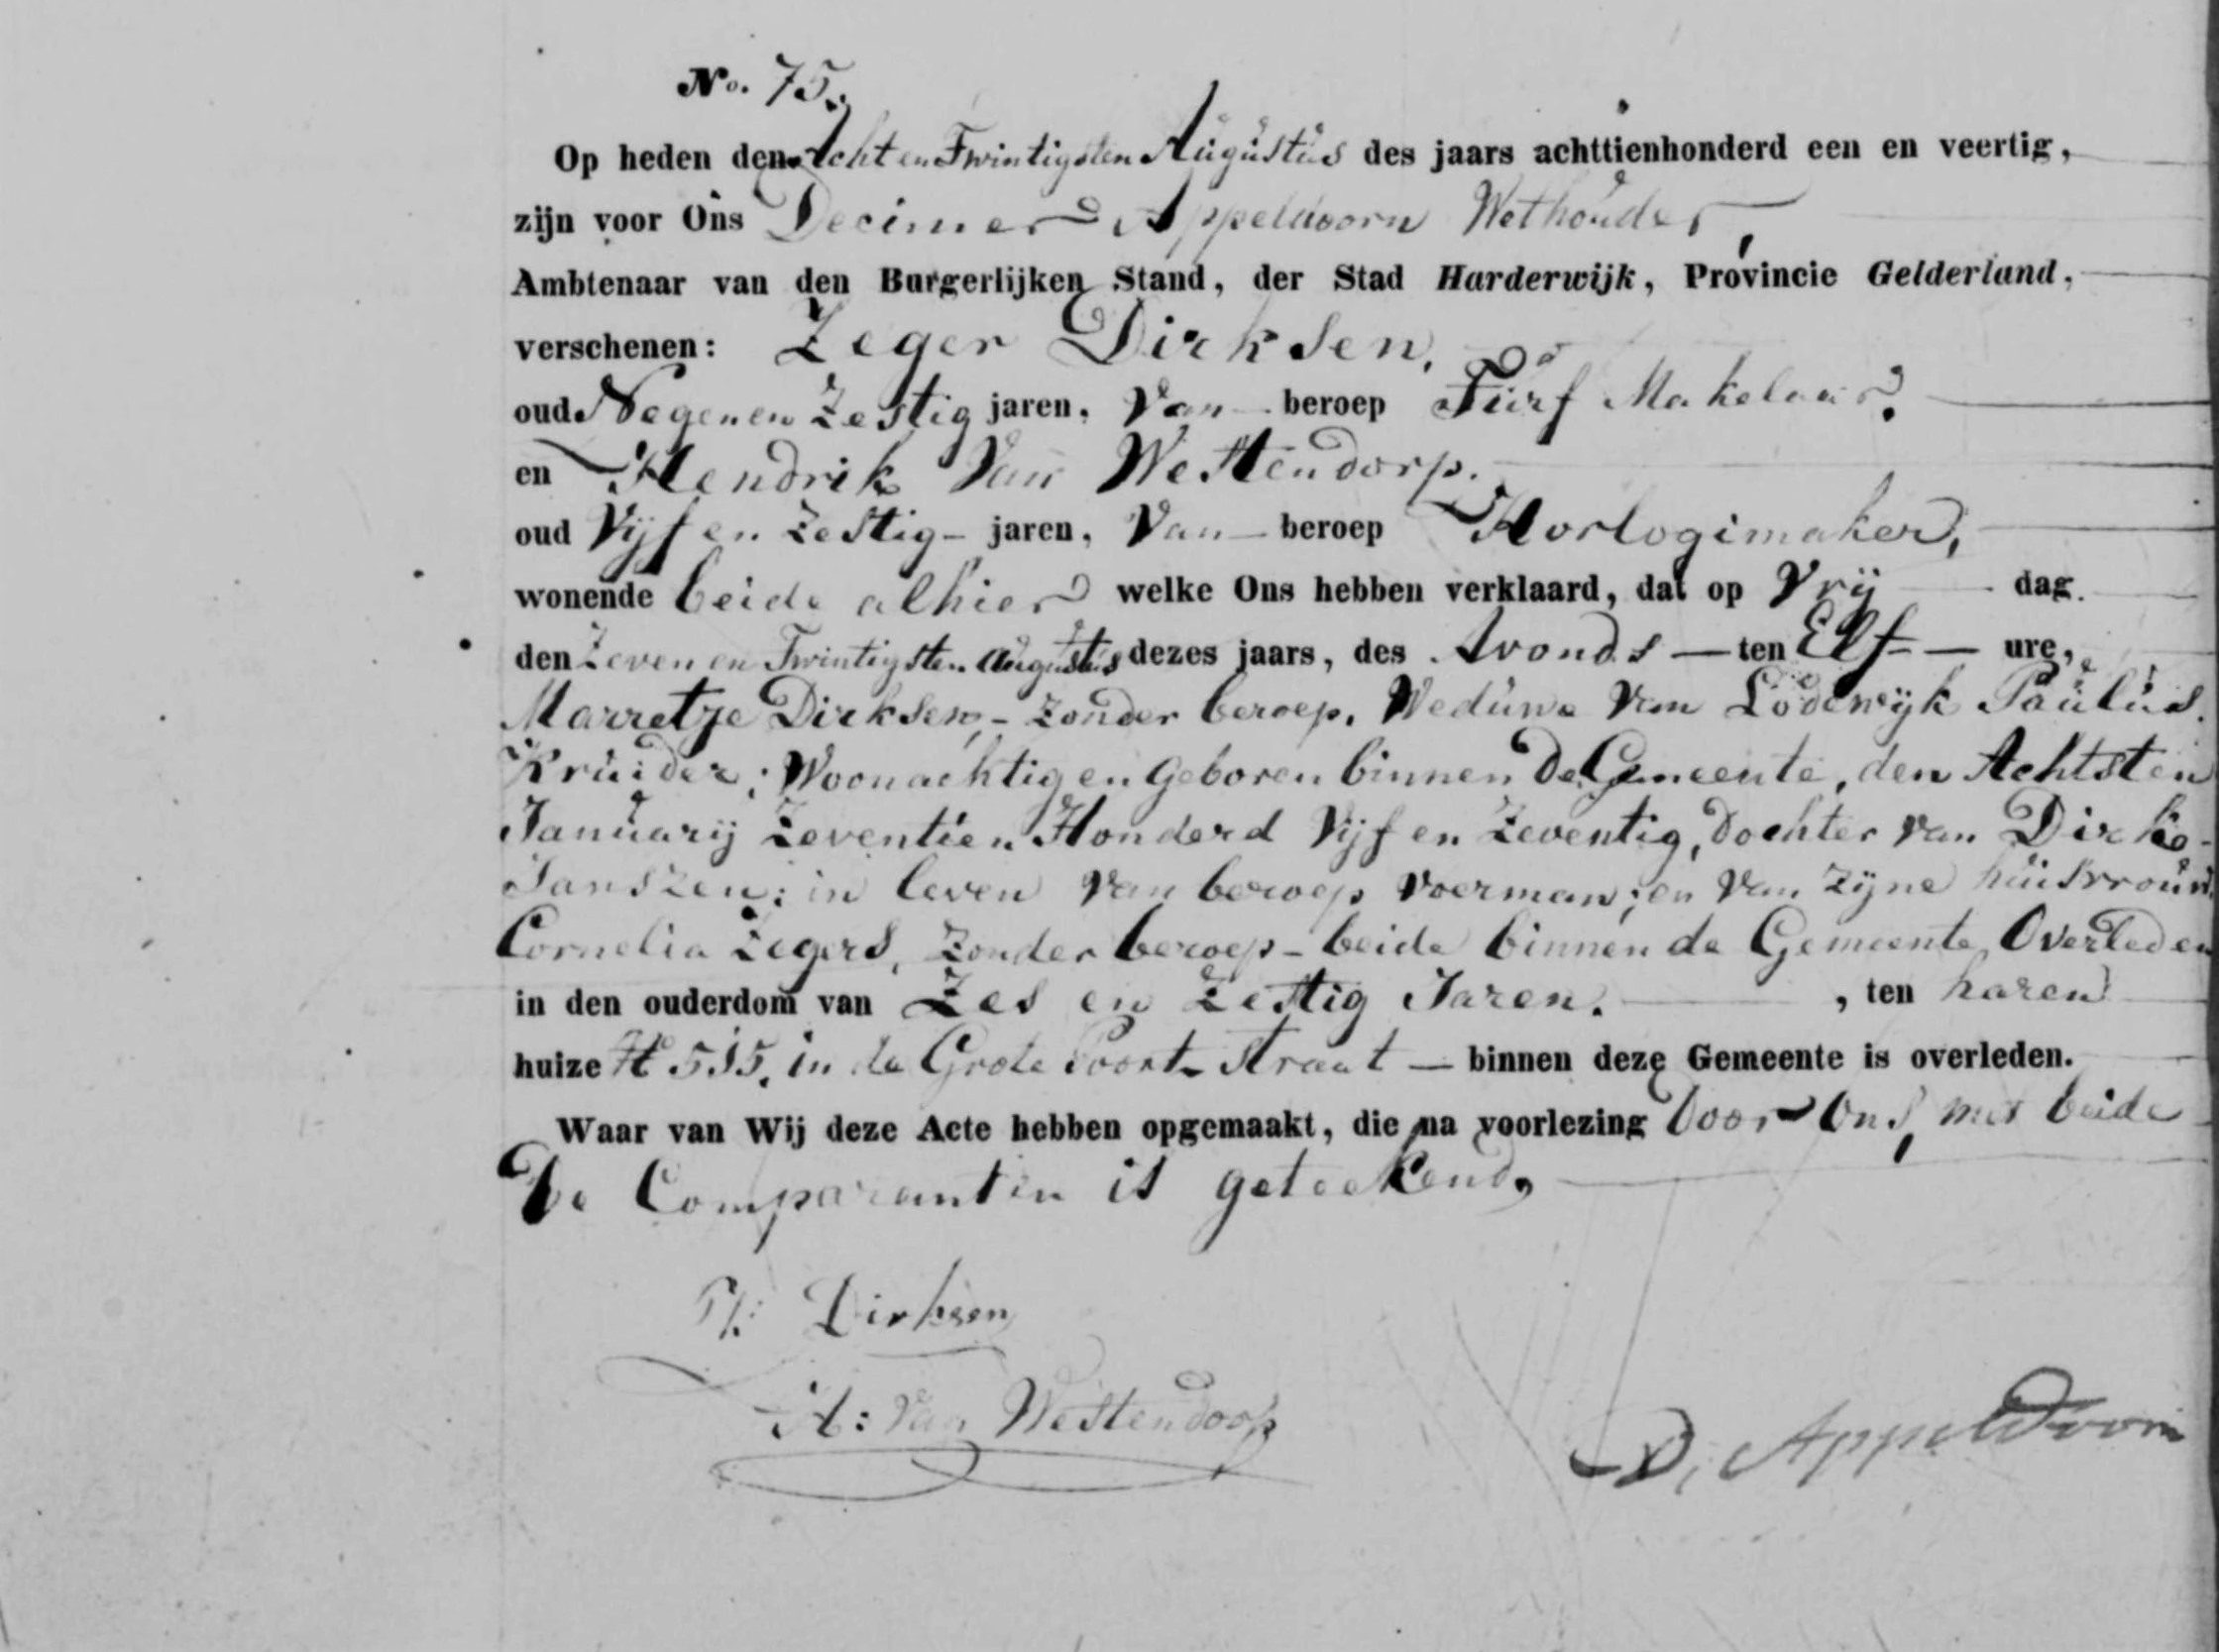 No. 75.
Op heden den Acht en Twintigsten Augustus des jaars achttienhonderd een en veertig,
zijn voor Ons Decimer Appeldoorn Wethouder,
Ambtenaar van den Burgerlijken Stand, der Stad Harderwijk, Provincie Gelderland,
verschenen: Zeger Dirksen,
oud Negen en Zestig jaren, Van beroep Turf Makelaar.
en Hendrik Van Westendorp.
oud Vijf en Zestig jaren, Van beroep Horlogimaker,
wonende beide alhier welke Ons hebben verklaard, dat op Vrij dag
den Zeven en Twintigsten Augustus dezes jaars, des Avonds ten Elf ure,
Marretje Dirksen, zonder beroep, Weduwe Van Lodewijk Paulus.
Kruider; Woonachtig en Geboren binnen de Gemeente, den Achtsten
Januarij Zeventien Honderd Vijf en Zeventig, dochter van Dirk
Janszen; in leven van beroep voerman; en van zijne huisvrouw
Cornelia Zegers, zonder beroep - beide binnen de Gemeente Overleden
in den ouderdom van Zes en Zestig Jaren. , ten haren
huize No 515. in de Grote Poort Straat — binnen deze Gemeente is overleden.
Waar van Wij deze Acte hebben opgemaakt, die na voorlezing door Ons, met beide
De Comparanten is geteekend,
Dirksen
H: Van Westendorp
D. Appeldoorn